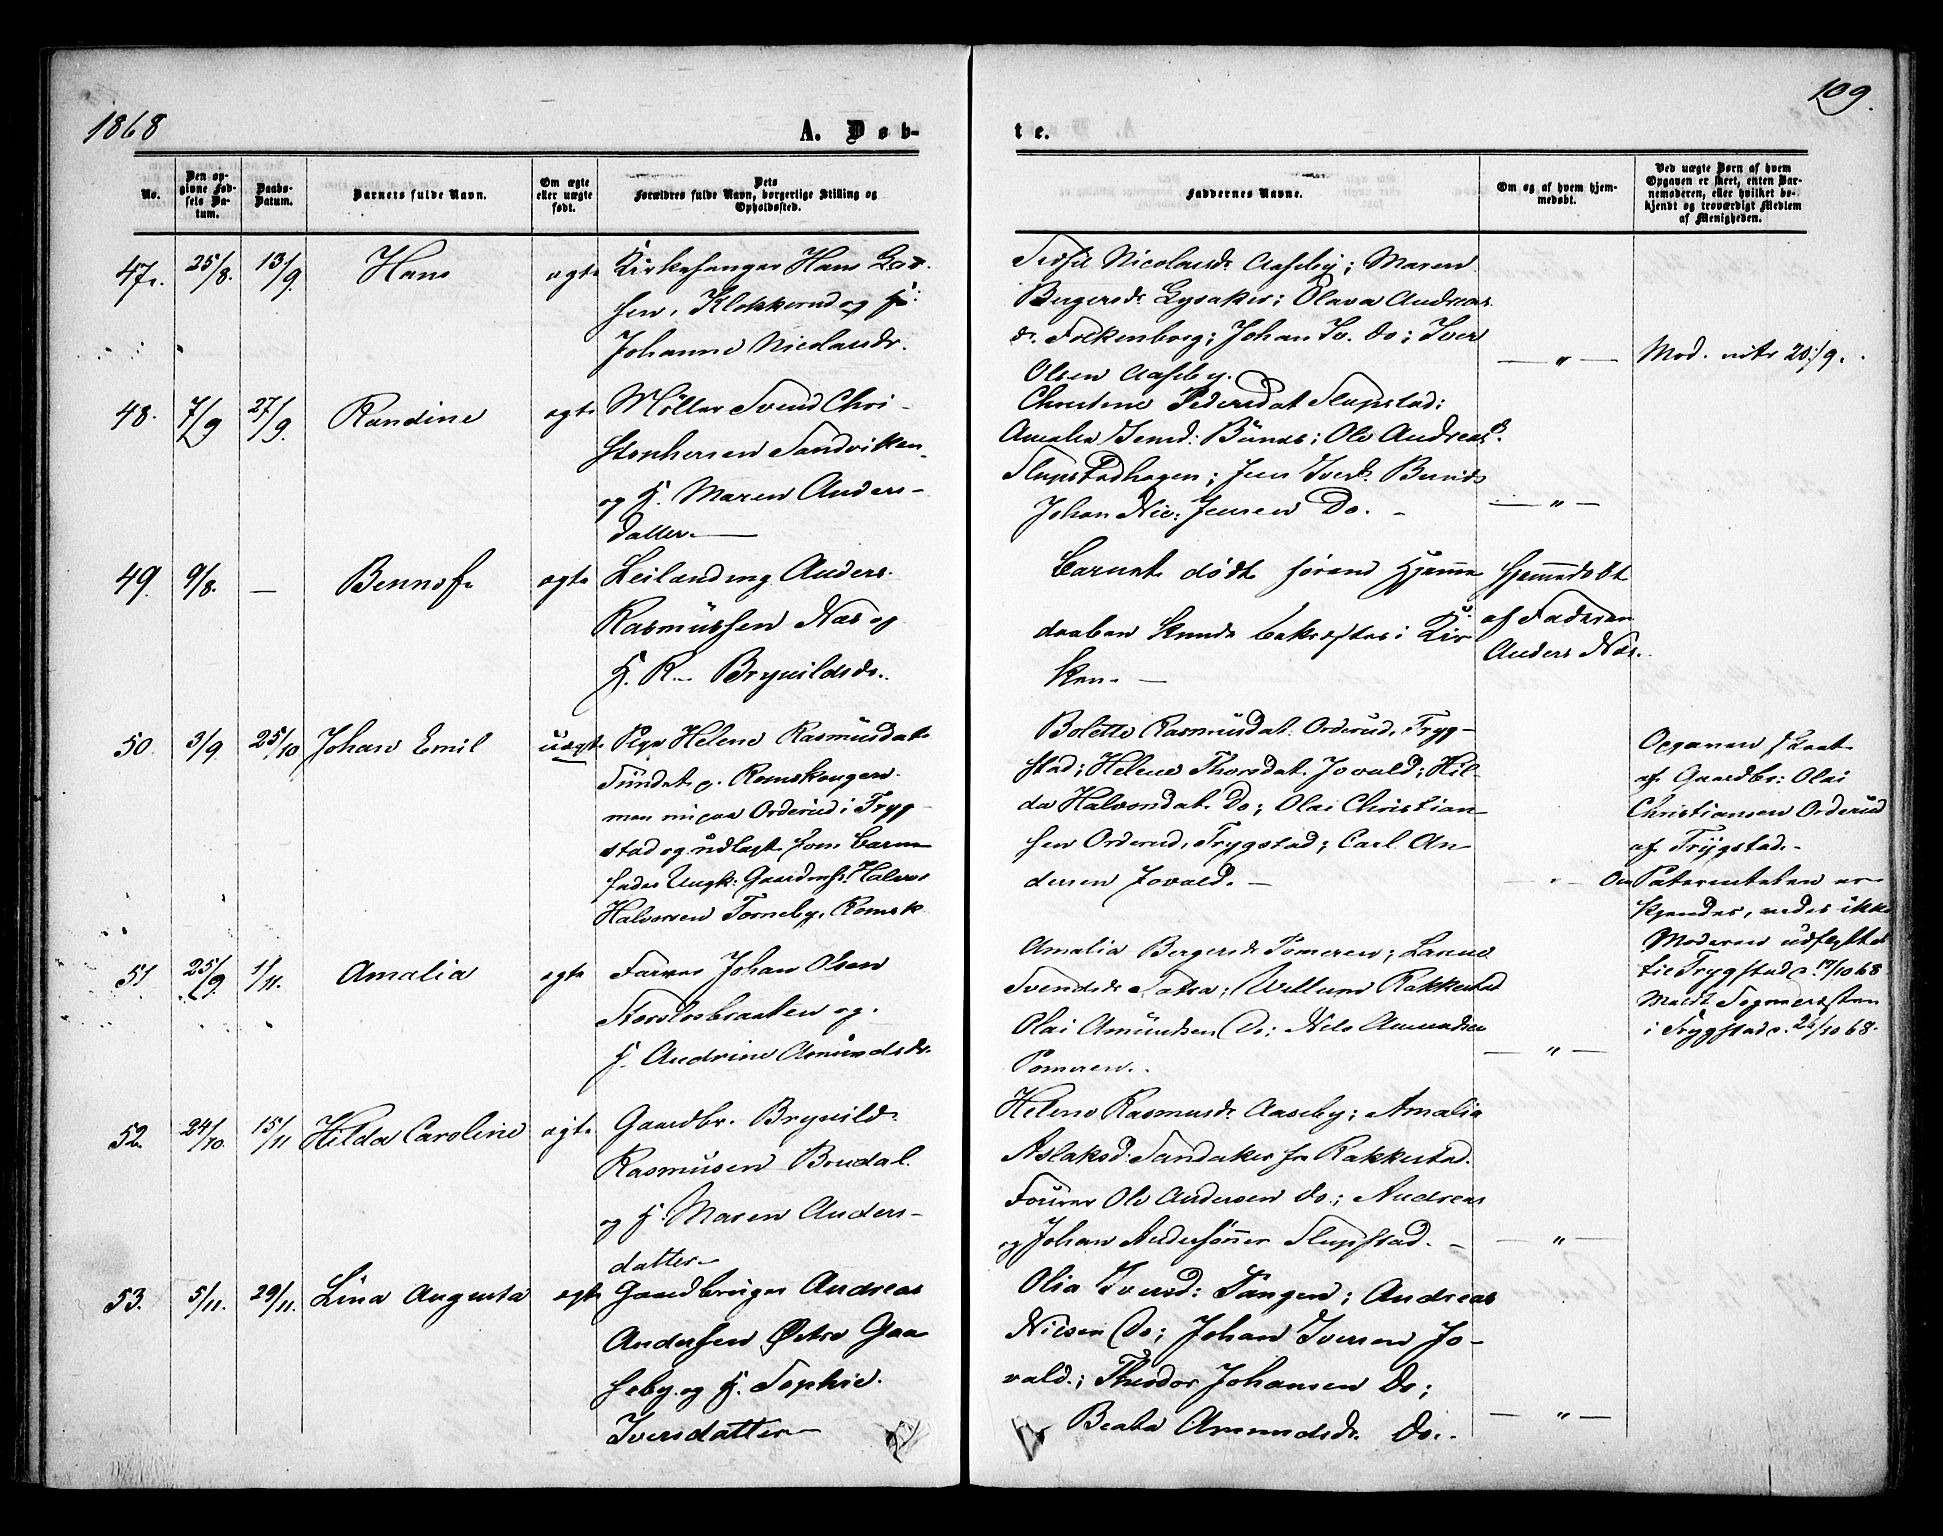 1868
109.
A. Døb-
te.
No.
Den op-
givne Fød-
sels Da-
tum.
Daabs-
Datum.
Barnets fulde Navn.
Om ægte
eller uægte
født.
Dets
Forældres fulde Navn, borgerlige Stilling og
Opholdssted.
Faddernes Navne.
Om og af hvem hjem-
medøbt.
Ved uægte Børn af hvem
Opgaven er skeet, enten Bar-
nemoderen, eller hvilket be-
kjendt og troværdigt Medlem
af Menigheden.
47. 25/8. 13/9. Hans ægte Kirkesanger Hans Lar-
sen, Klokkerud og H:
Johanne Nicolaidr.
Nicolaisdr Aaseby; Maren
Bergersdr Lysaker; Olava Andreas
dr. Folkenborg; Johan Iv. do; Iver
Olsen Aaseby.
— " — Mod. 20/9.
48. 7/9 27/9. Randine ægte Møller Svend Chri-
stophersen Sandviken
og H. Maren Anders-
datter.
Christine Pedersdat Slupstad:
Amalia Bunds; Ole Andreas
Slupstadhagen; Jens Bunds
Johan Nic: Jensen Do. -
— " —
49. 9/8. — ægte Leilænding Anders
Rasmussen Næs og
H. R— Brynildsdr.
Barnet døde førend Hjemme
daaben kunde bekræftes i Kir
ken. —
Hjemmedøbt
af Faderen
Anders Næs.
50. 3/9 25/10 Johan Emil uægte Pige Helene Rasmusdat
Romskougen
Orderud i Tryg-
stad og udlagt som Barne
fader Ungk: Halvor
Halvorsen Torneby, Romsk
Bolette Rasmusdat. Orderud, Tryg-
stad; Helene Thorsdat. Jovald; Hil-
da Halvorsdat. Do; Olai Christian-
sen Orderud, Trygstad; Carl An-
dersen Jovald. —
Opgaven skeet
af Gaardbr: Olai
Christiansen Orderud
af Trygstad.-
Om Paterniteten er-
kjendes, vides ikke
Moderen udflyttet
til Trygstad d. 17/10 68
Meldt Sognepræsten
i Trygstad d. 26/10 68.
51 25/9. 1/11. Amalia ægte Farver Johan Olsen
og.
H. Andrine Amundsdr.
Amalia Bergersdr Tomeren;
Svendsdr Rakkestad
Olai Amundsen Do; Nels Amundsen
Tomeren.
— " —
52. 24/10. 15/11 Hilda Caroline ægte Gaardbr. Brynild
Rasmusen Brudal.
og H. Maren Anders-
datter
Helene Rasmusdr Aaseby; Amalia
Aslaksd: Sandaker fra Rakkestad.
Ole Andersen do; Andreas
og Johan Andersønner Slupstad. -
— " —
53. 5/11. 29/11. Lina Augusta ægte Gaardbruger Andreas
Andersen Østre Gaa
seby og H. Sophie.
Iversdatter —
Olia Iversd: Tangen; Andreas
Nilsen Do; Johan Iversen Jo-
vald.; Theodor Johansen Do;
Beata Amundsdr. Do..
— " —